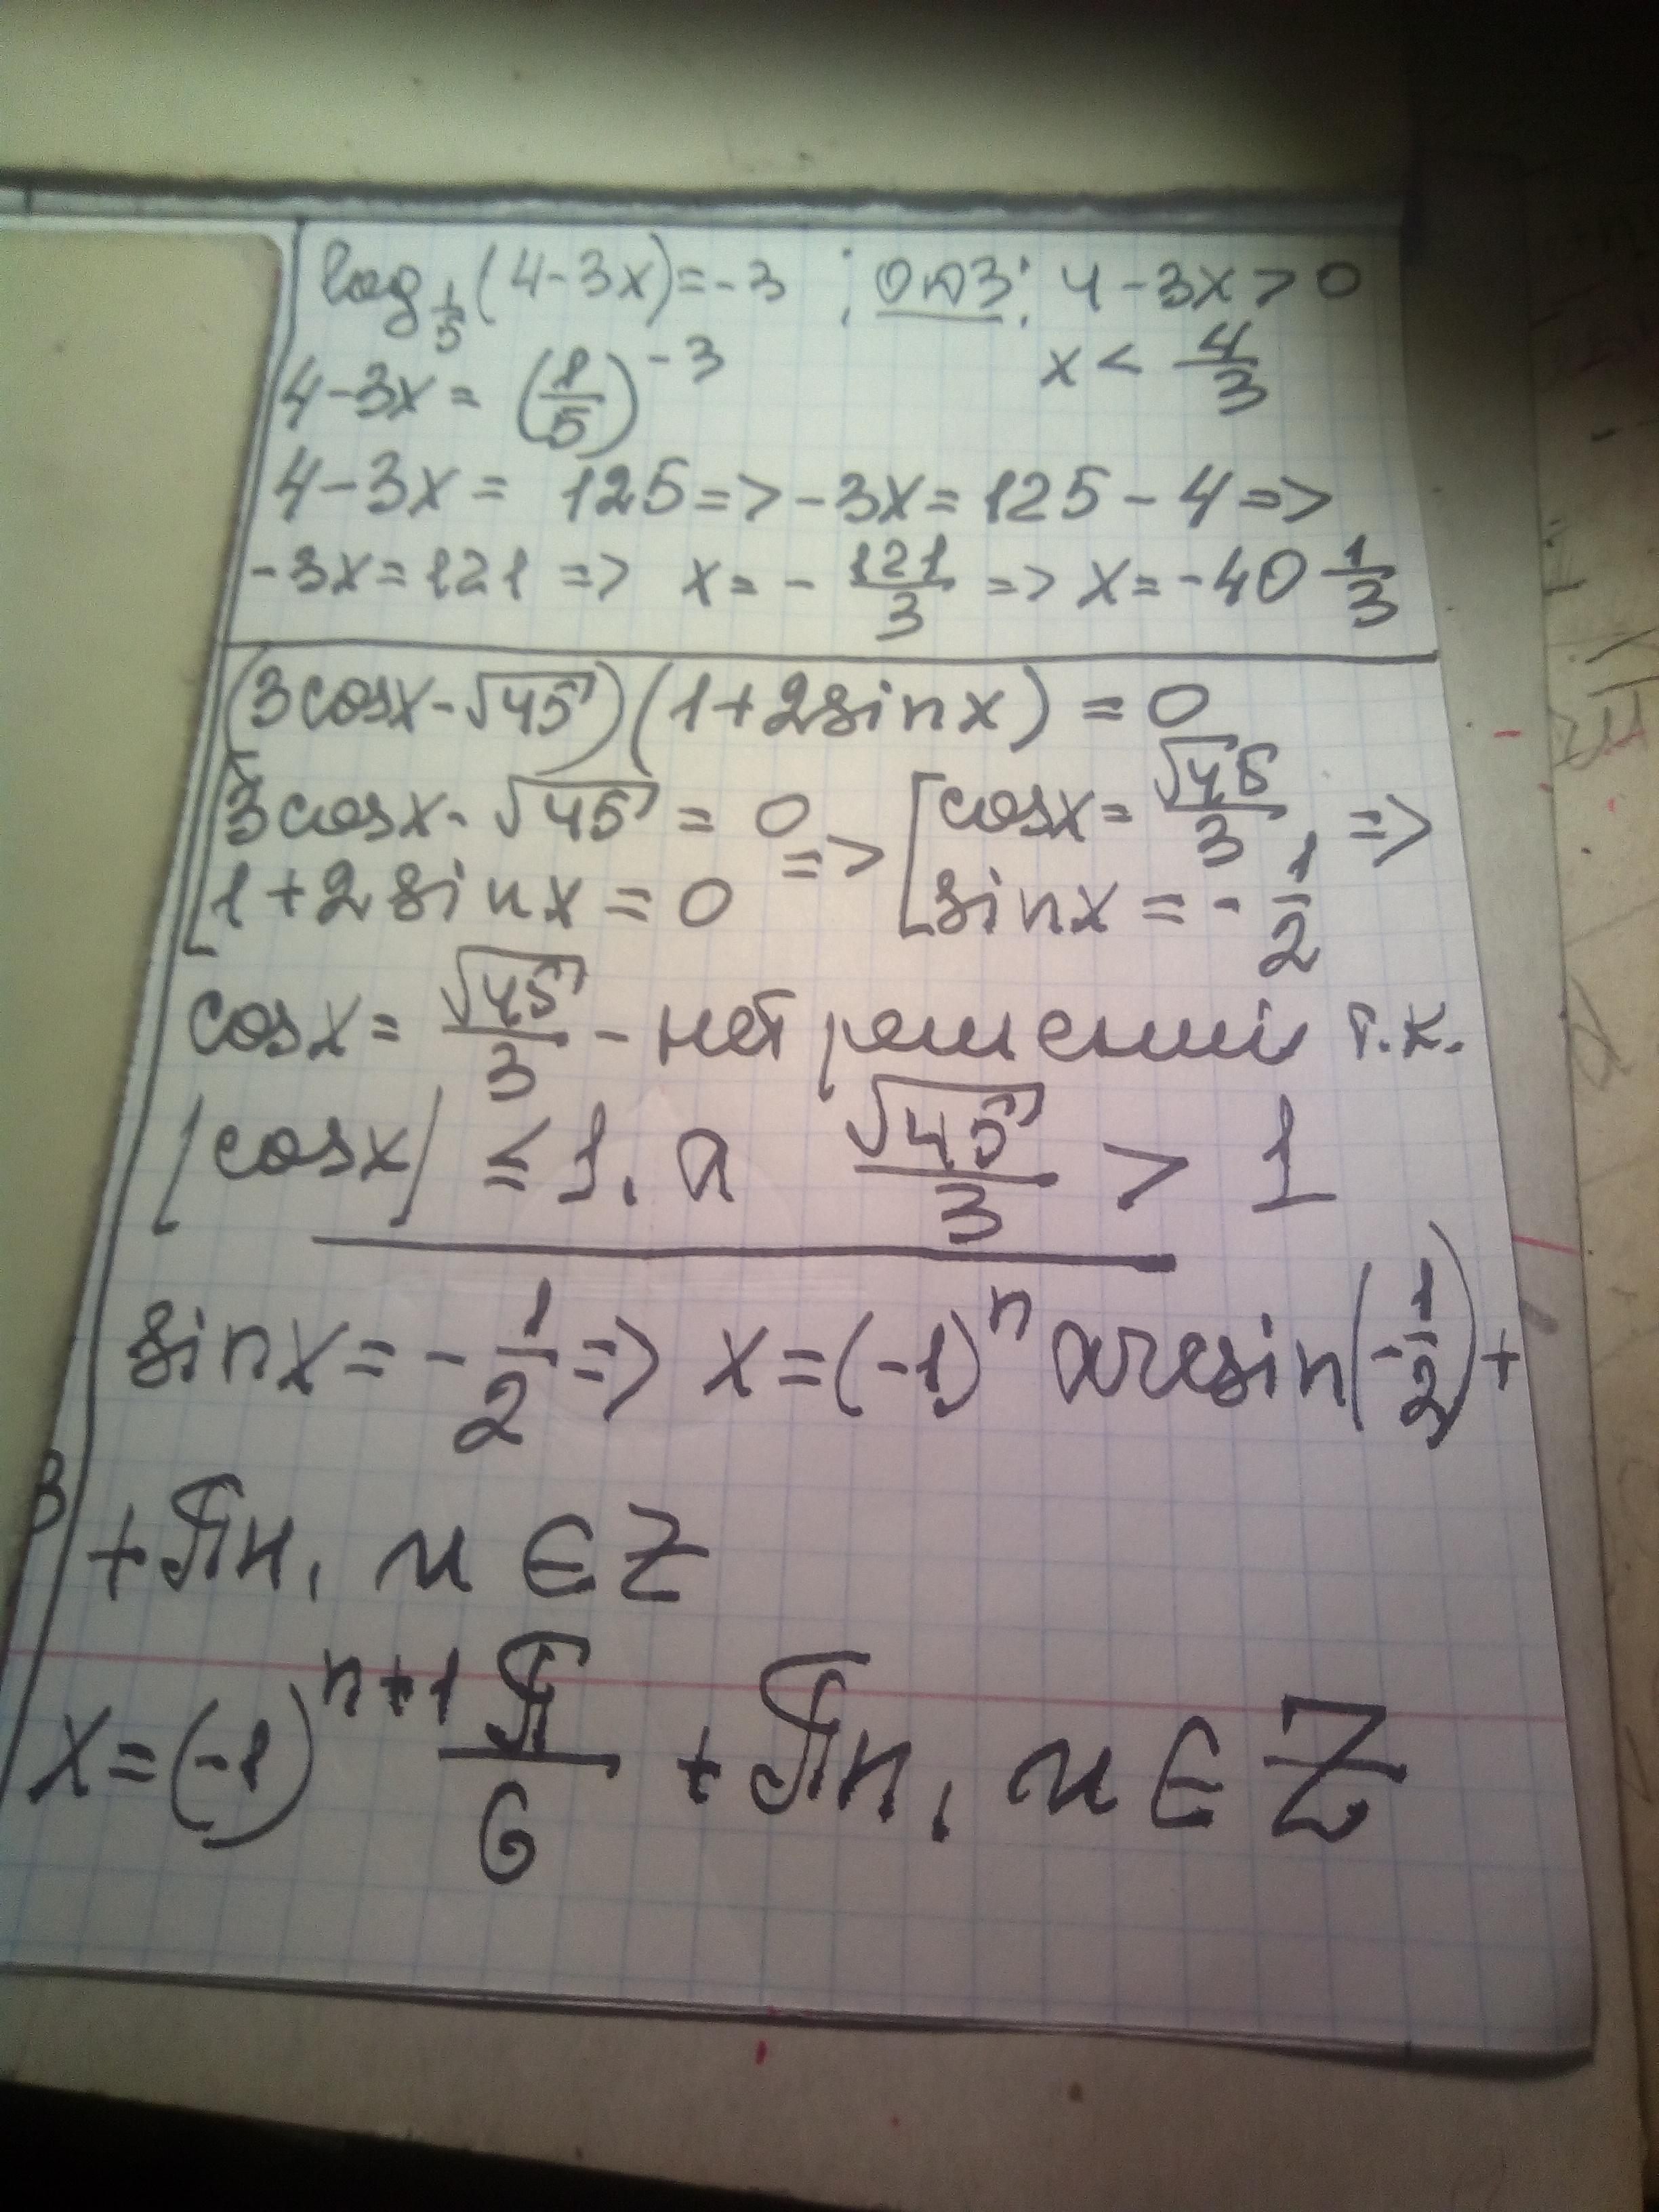 log_{1/5}(4-3x)=-3 ; ОДЗ: 4-3x>0
4-3x = (1/5)^{-3} x < 4/3
4-3x = 125 => -3x = 125-4 =>
-3x=121 => x = -121/3 => x = -40 1/3
(3cosx-√45)(1+2sinx)=0
[3cosx-√45=0 => [cosx=√45/3 =>
[1+2sinx=0 [sinx=-1/2
cosx=√45/3 - нет решений т.к.
|cosx| ≤ 1, а √45/3 > 1
sinx=-1/2 => x=(-1)^n arcsin(-1/2)+
+πn, n∈Z
x=(-1)^{n+1} π/6 + πn, n∈Z